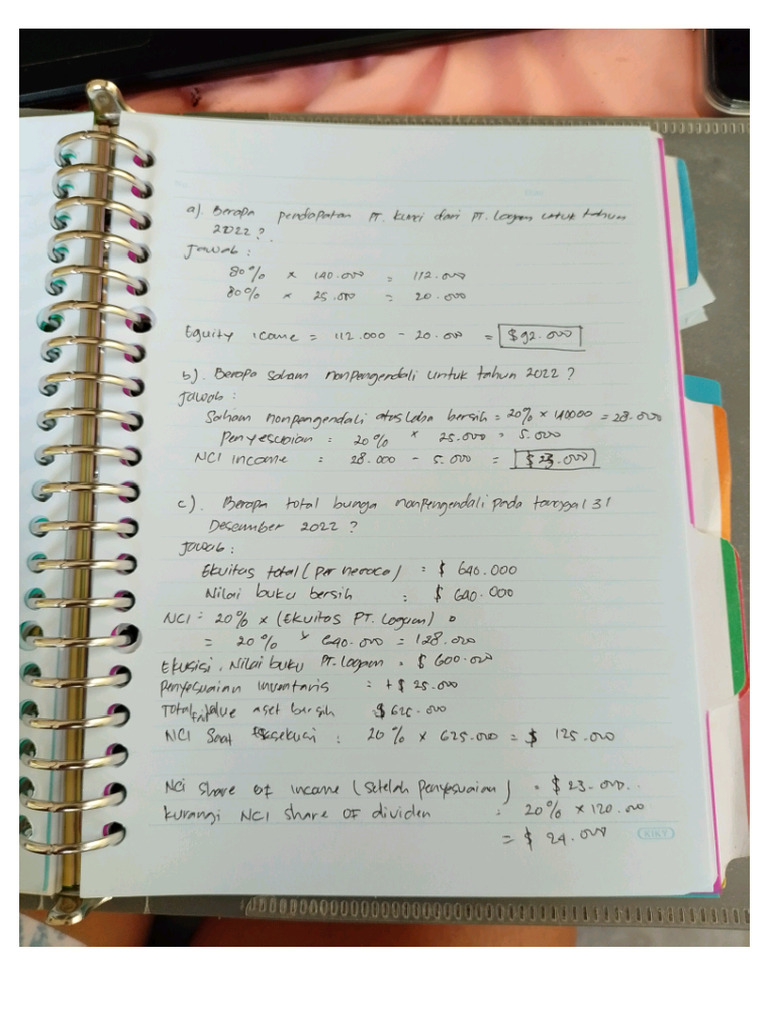 a). Berapa pendapatan PT. kunci dari PT. Logam untuk tahun
2022?
Jawab :
80% × 140.000 = 112.000
80% × 25.000 = 20.000
Equity icome = 112.000 - 20.000 = $92.000
b). Berapa saham nonpengendali untuk tahun 2022?
Jawab:
Saham nonpengendali atas laba bersih = 20% × 140000 = 28.000
Penyesuaian = 20% × 25.000 = 5.000
NCI income = 28.000 - 5.000 = $23.000
c). Berapa total bunga nonpengendali pada tanggal 31
Desember 2022?
Jawab :
Ekuitas total (per neraca) = $ 640.000
Nilai buku bersih : $ 640.000
NCI = 20% × (Ekuitas PT. Logam)
= 20% × 640.000 = 128.000
Nilai buku PT. Logam = $ 600.000
Penyesuaian inventaris = + $ 25.000
Total value aset bersih $ 625.000
NCI Saat : 20% × 625.000 = $ 125.000
NCI share of income (setelah penyesuaian) = $ 23.000
kurangi NCI share OF dividen : 20% × 120.000
= $ 24.000
KIKY